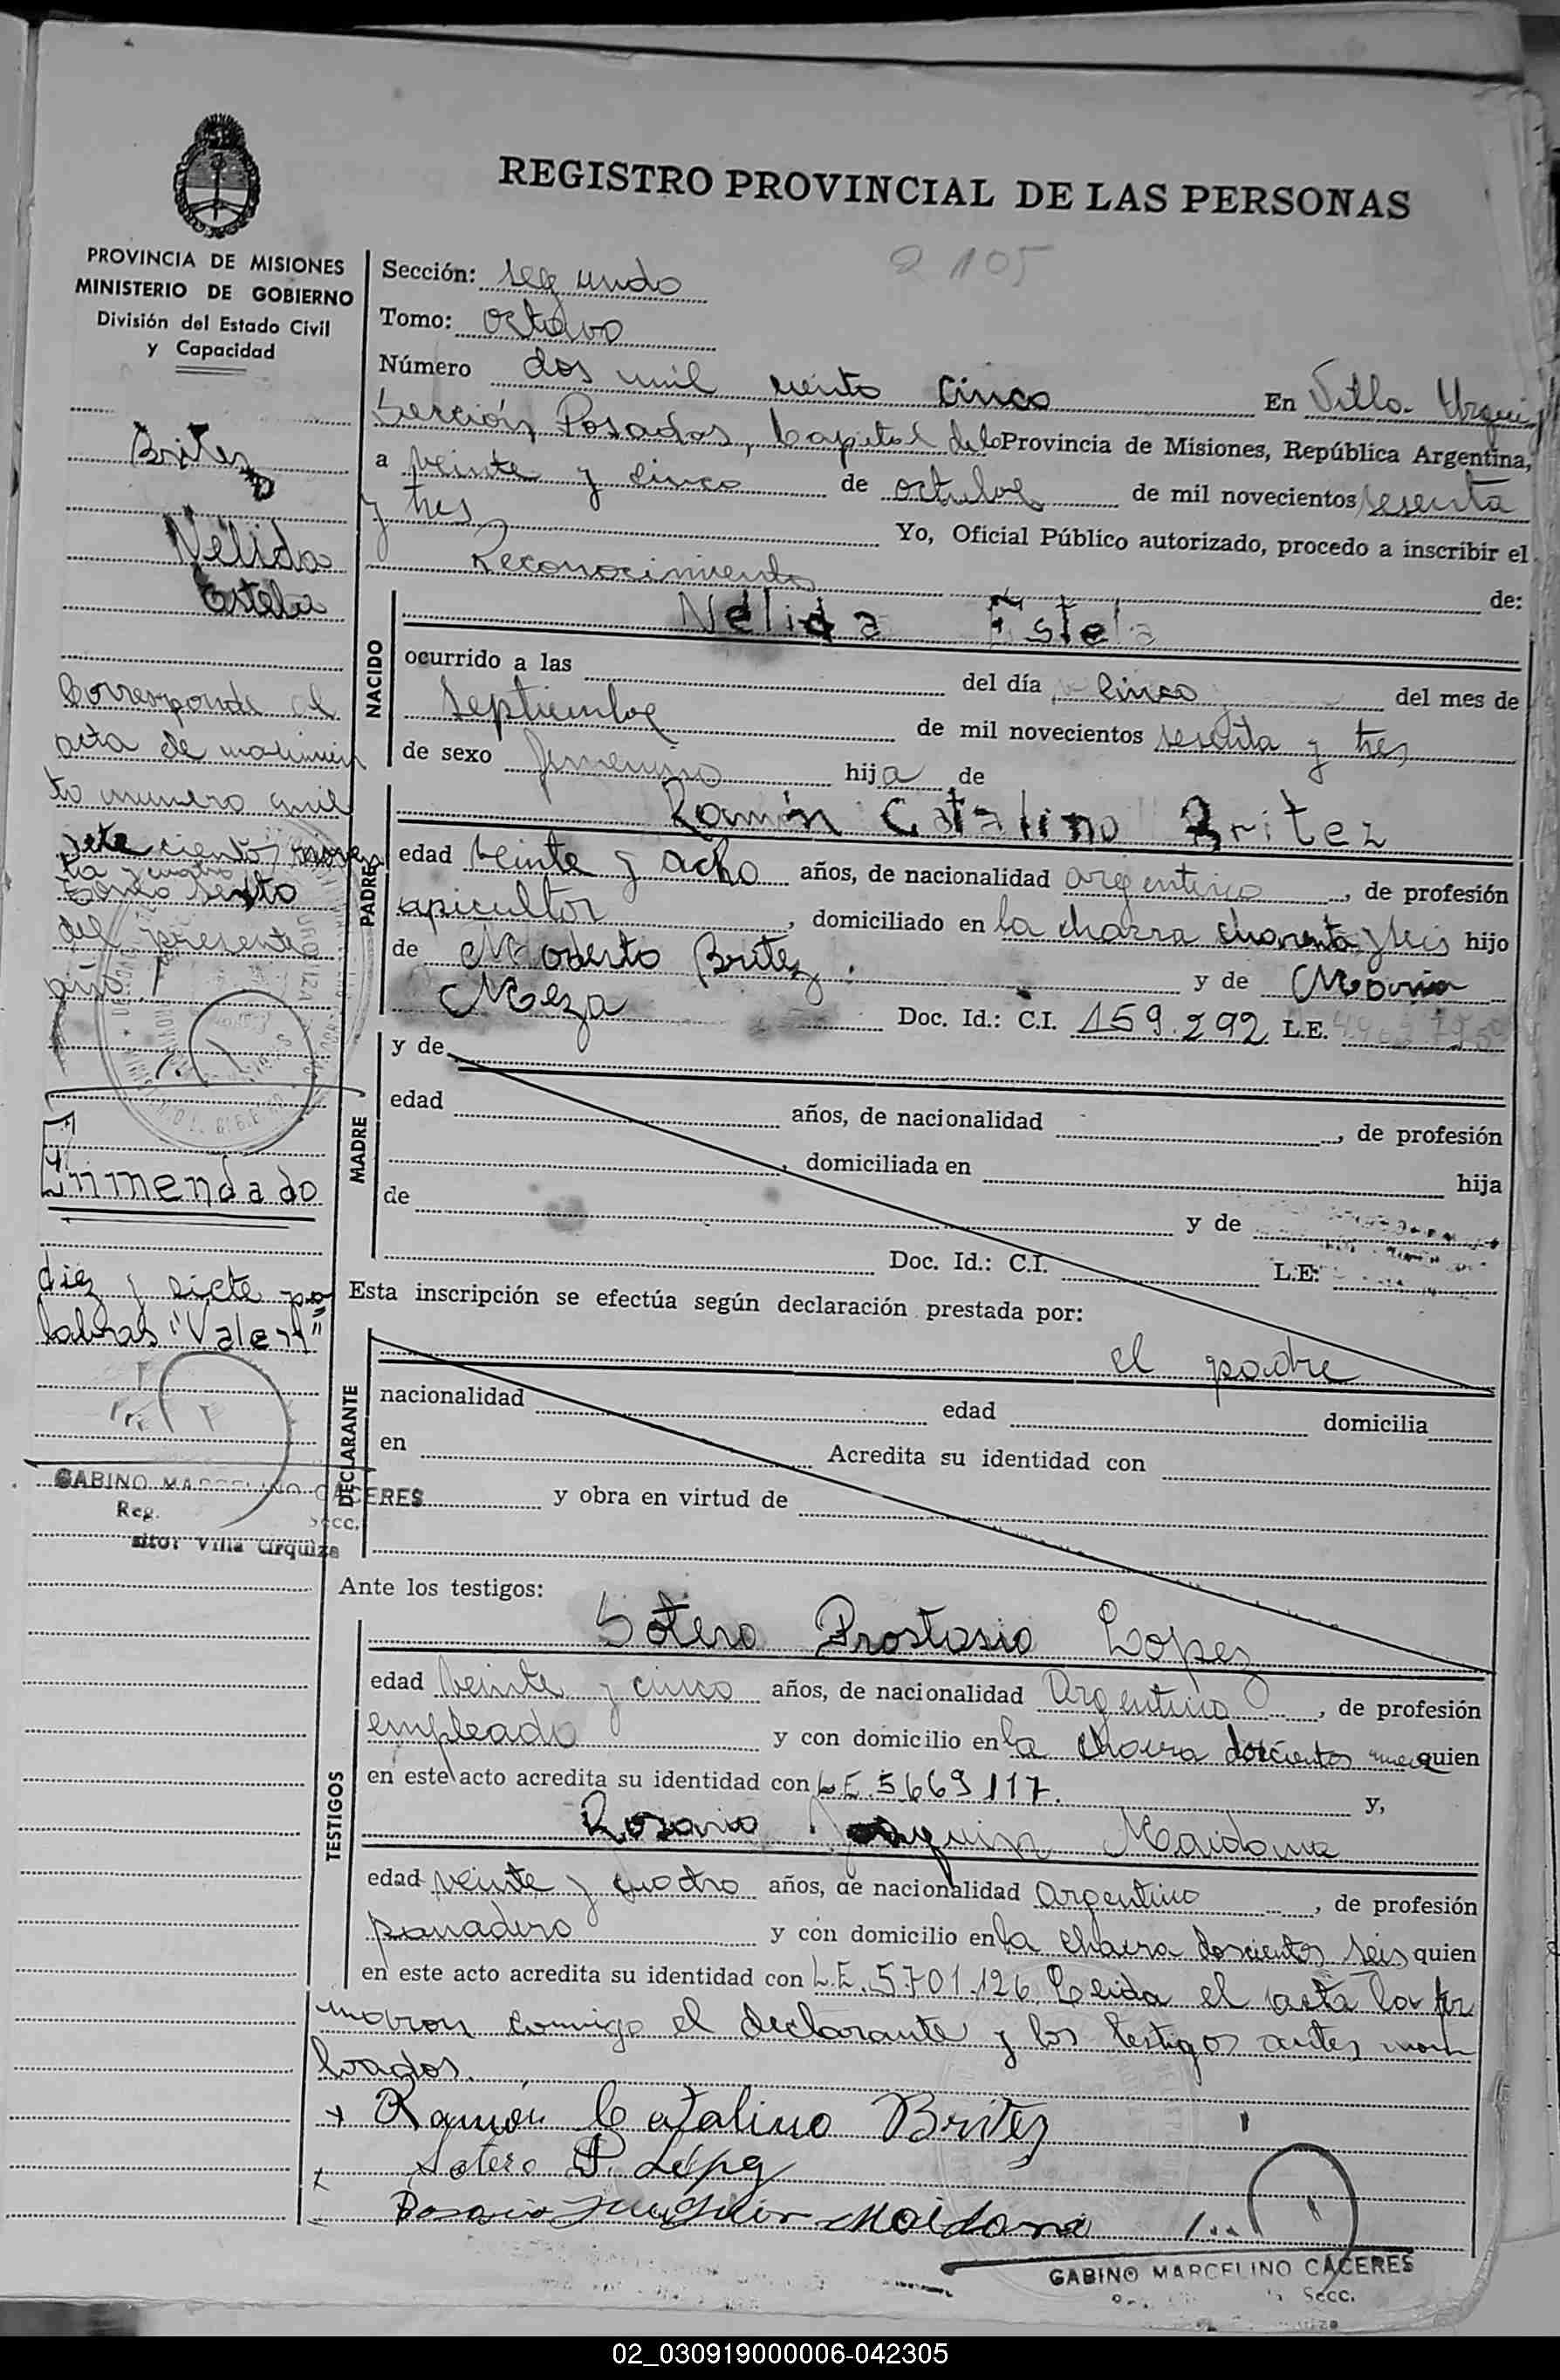 REGISTRO PROVINCIAL DE LAS PERSONAS
2105
PROVINCIA DE MISIONES
MINISTERIO DE GOBIERNO
División del Estado Civil
y Capacidad
Britez
Nélida
Estela
Corresponde al
acta de nacimien
to numero mil
sete cientos noven
ta y cuatro
tomo sexto
del presente
año.
Enmendado
diez y siete pa
labras "Valen"
GABINO MARCELINO CACERES
Reg. Secc.
Villa Urquiza
Sección: segundo
Tomo: octavo
Número dos mil ciento cinco En Villa Urquiz
Sección Posadas, Capital de la Provincia de Misiones, República Argentina,
a veinte y cinco de octubre de mil novecientos sesenta
y tres Yo, Oficial Público autorizado, procedo a inscribir el
Reconocimiento de:
NACIDO
Nélida Estela
ocurrido a las del día cinco del mes de
septiembre de mil novecientos sesenta y tres
de sexo femenino hija de
PADRE
Ramón Catalino Britez
edad veinte y ocho años, de nacionalidad argentino, de profesión
apicultor, domiciliado en la chacra cuarenta y seis hijo
de Modesto Britez y de María
Meza Doc. Id.: C.I. 159.292 L.E.
MADRE
y de
edad años, de nacionalidad , de profesión
, domiciliada en hija
de y de
Doc. Id.: C.I. L.E:
Esta inscripción se efectúa según declaración prestada por:
DECLARANTE
el padre
nacionalidad edad domicilia
en Acredita su identidad con
y obra en virtud de
Ante los testigos:
TESTIGOS
Sotero Prostasio Lopez
edad veinte y cinco años, de nacionalidad Argentino, de profesión
empleado y con domicilio en la chacra doscientos quien
en este acto acredita su identidad con L.E. 5669117. y,
Rosario Joaquin Maidana
edad veinte y cuatro años, de nacionalidad argentino, de profesión
panadero y con domicilio en la chacra doscientos seis quien
en este acto acredita su identidad con L.E. 5701.126. Leida el acta la fir
maron conmigo el declarante y los testigos antes nom
brados.
Ramón Catalino Britez
Sotero P. López
Rosario Juaquin Maidana
GABINO MARCELINO CACERES
Secc.
02_030919000006-042305